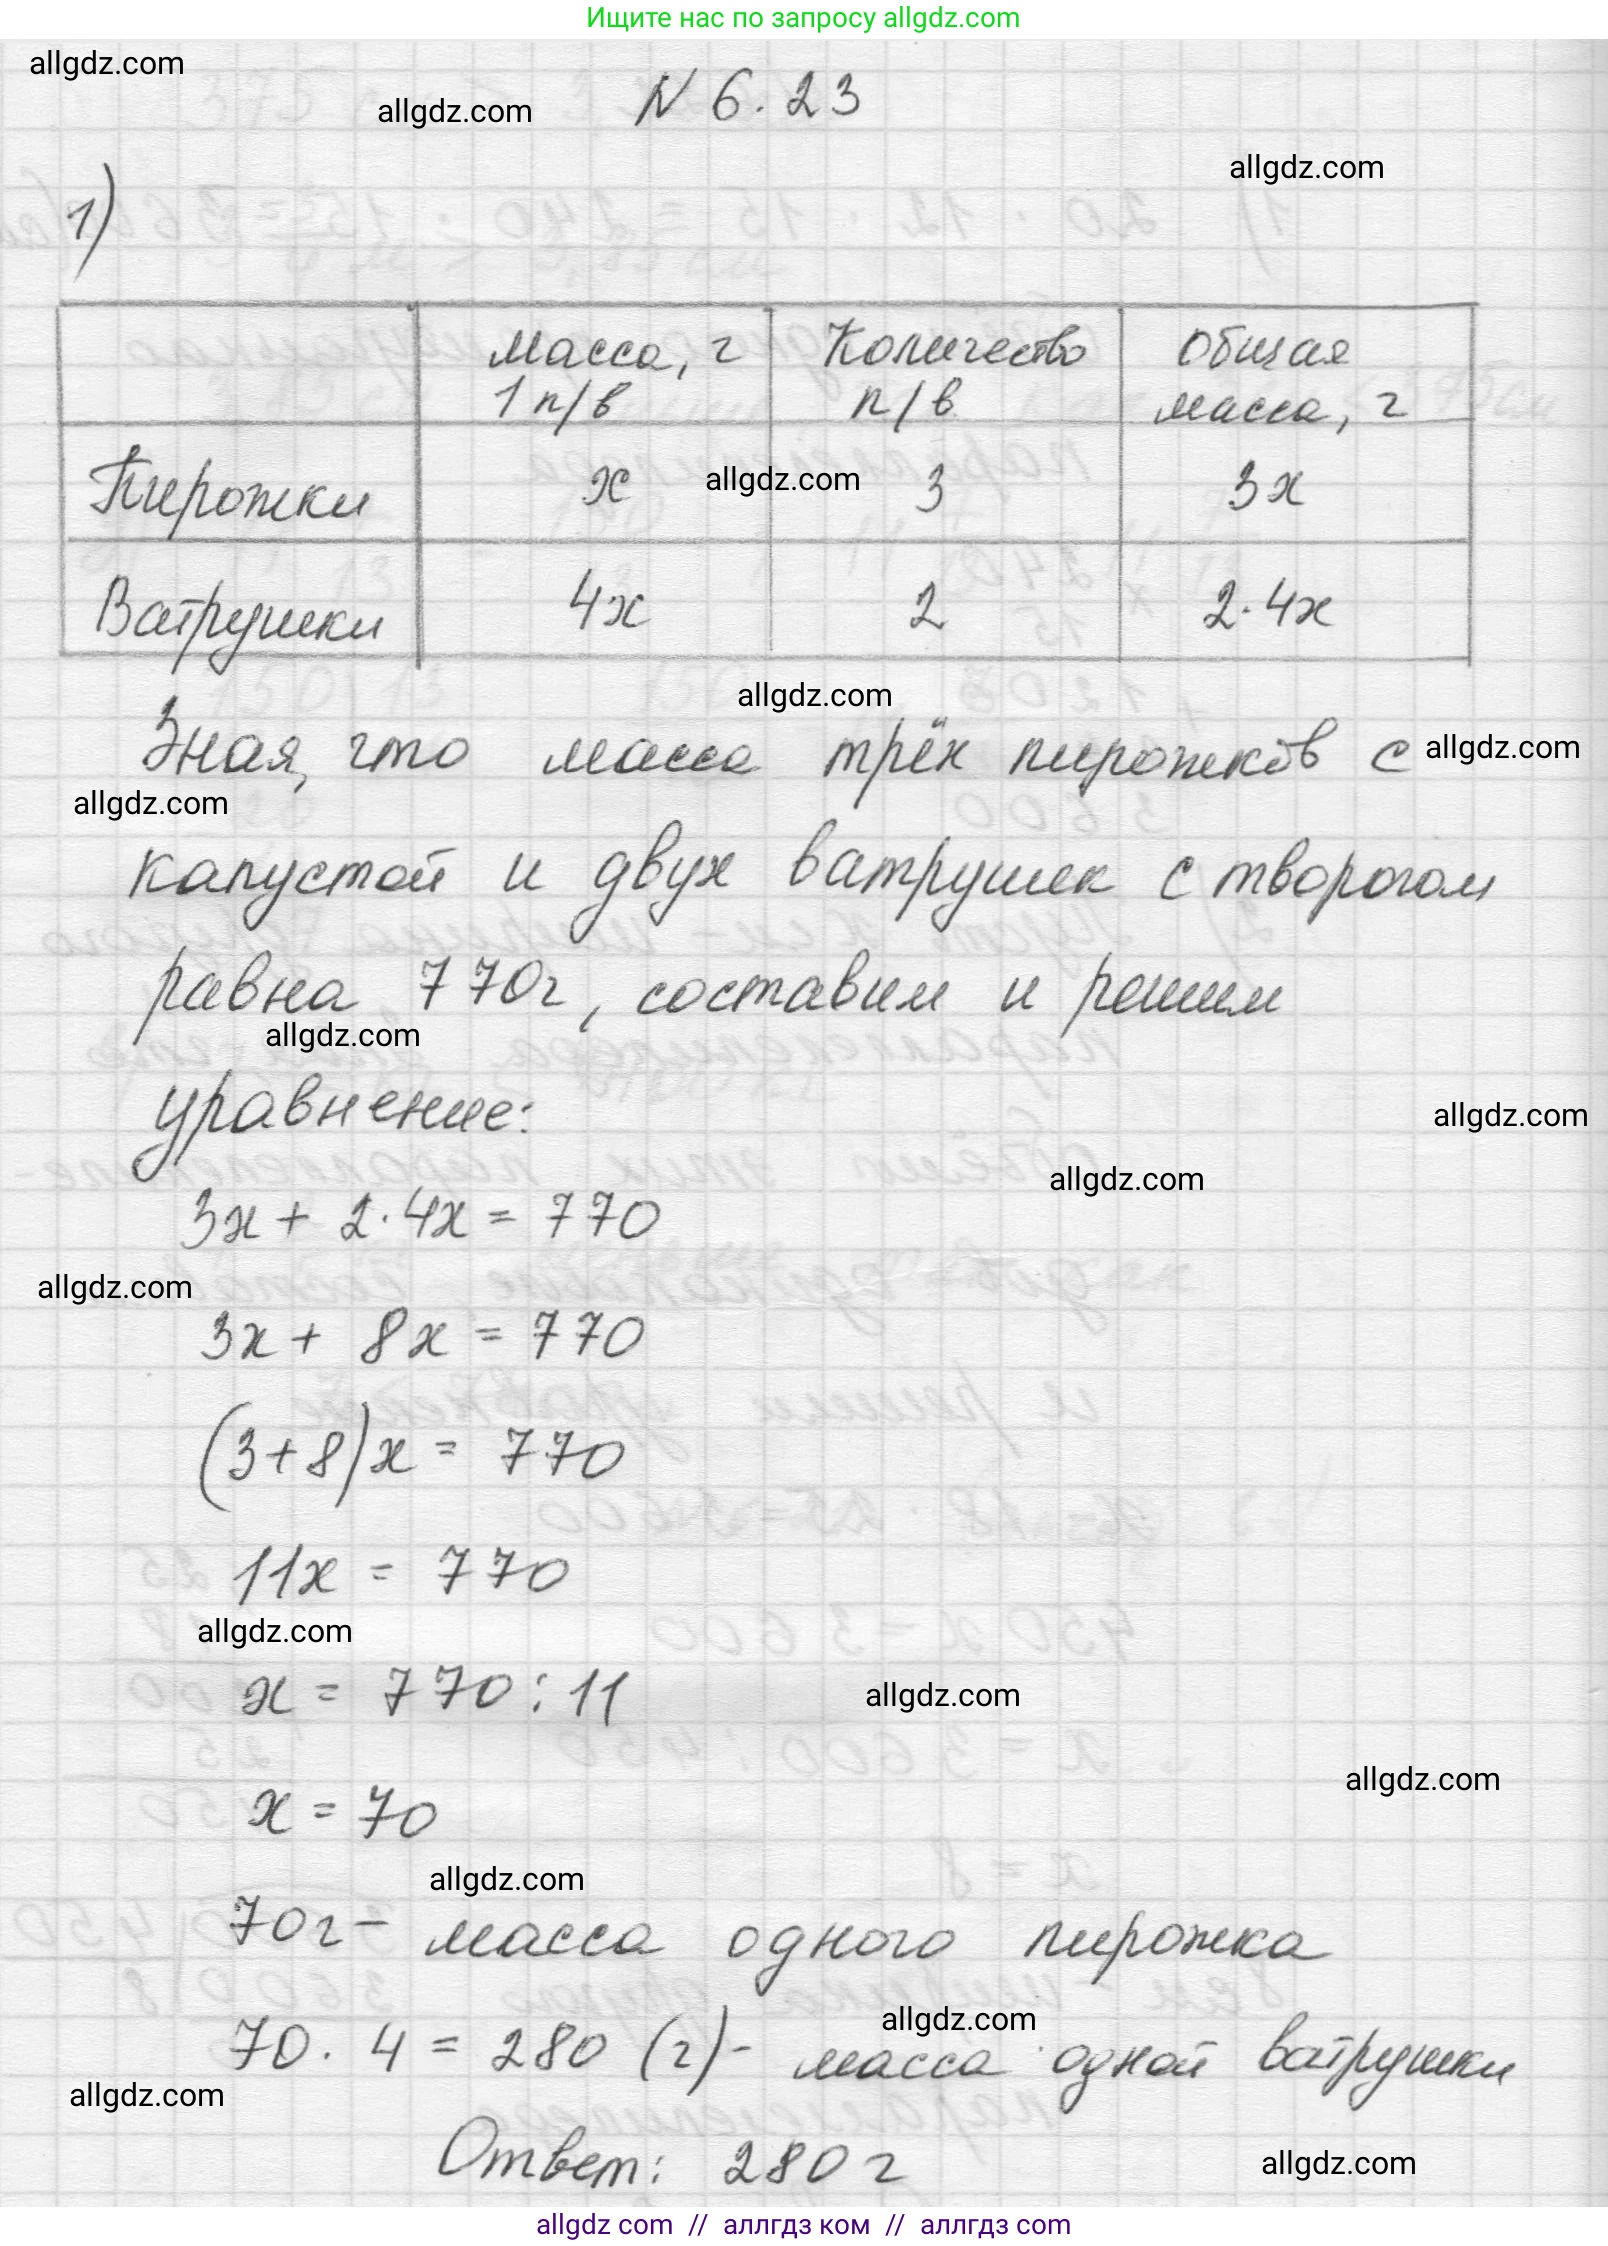 Ищите нас по запросу allgdz.com
allgdz.com
allgdz.com
N 6.23
allgdz.com
1)
масса, г 1 п/в | Количество п/в | Общая масса, г
Пирожки | x | 3 | 3x
allgdz.com
Ватрушки | 4x | 2 | 2·4x
allgdz.com
Зная, что масса трёх пирожков с
allgdz.com
allgdz.com
капустой и двух ватрушек с творогом
равна 770г, составим и решим
allgdz.com
уравнение:
allgdz.com
allgdz.com
3x + 2·4x = 770
allgdz.com
3x + 8x = 770
(3+8)x = 770
11x = 770
allgdz.com
x = 770 : 11
allgdz.com
allgdz.com
x = 70
allgdz.com
70г – масса одного пирожка
allgdz.com
70 · 4 = 280 (г) – масса одной ватрушки
allgdz.com
Ответ: 280 г
allgdz.com
allgdz com // аллгдз ком // аллгдз com